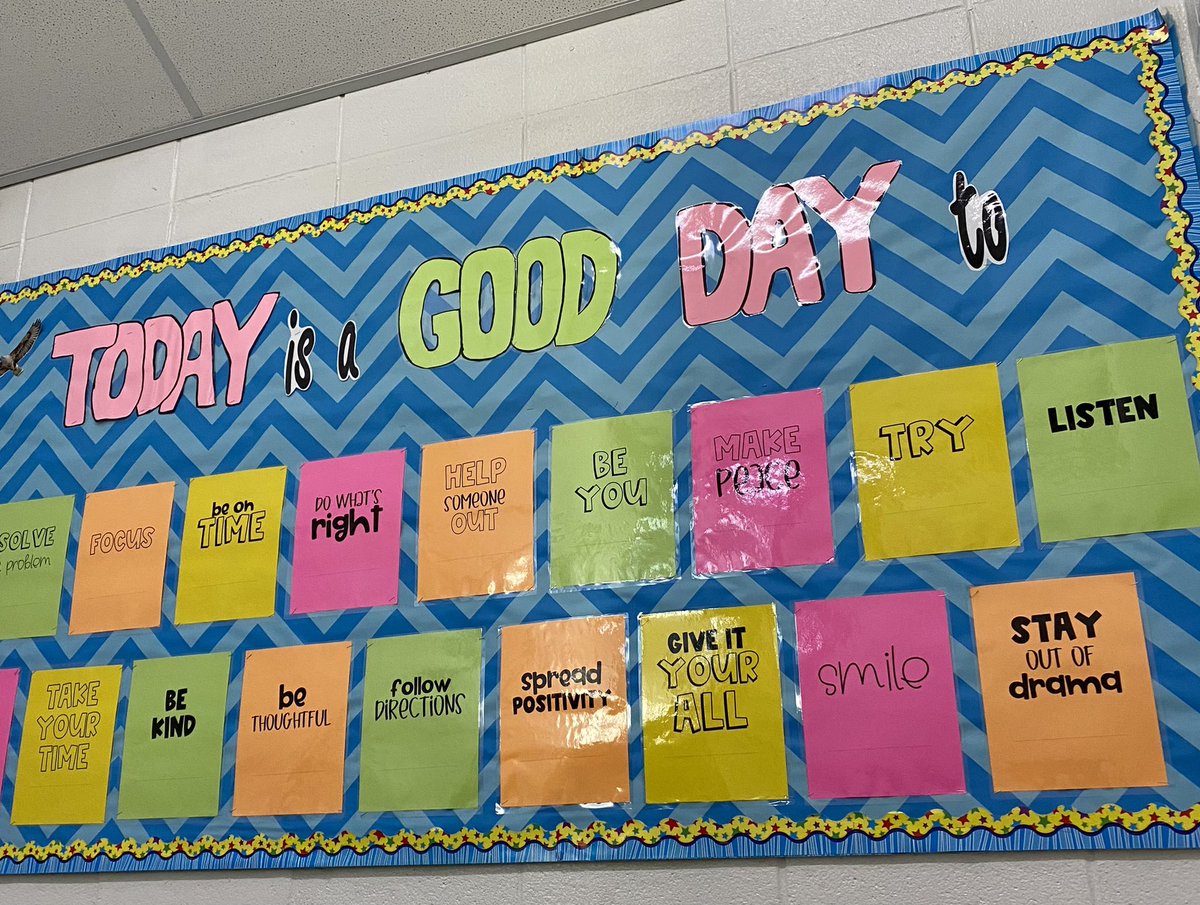 TODAY is a GOOD DAY to
SOLVE
problem
FOCUS
be on
TIME
DO WHAT'S
right
HELP
SOMEONE
OUT
BE
YOU
MAKE
peace
TRY
LISTEN
TAKE
YOUR
TIME
BE
KIND
be
THOUGHTFUL
follow
DIRECTIONS
spread
POSITIVITY
GIVE IT
YOUR
ALL
smile
STAY
OUT OF
drama